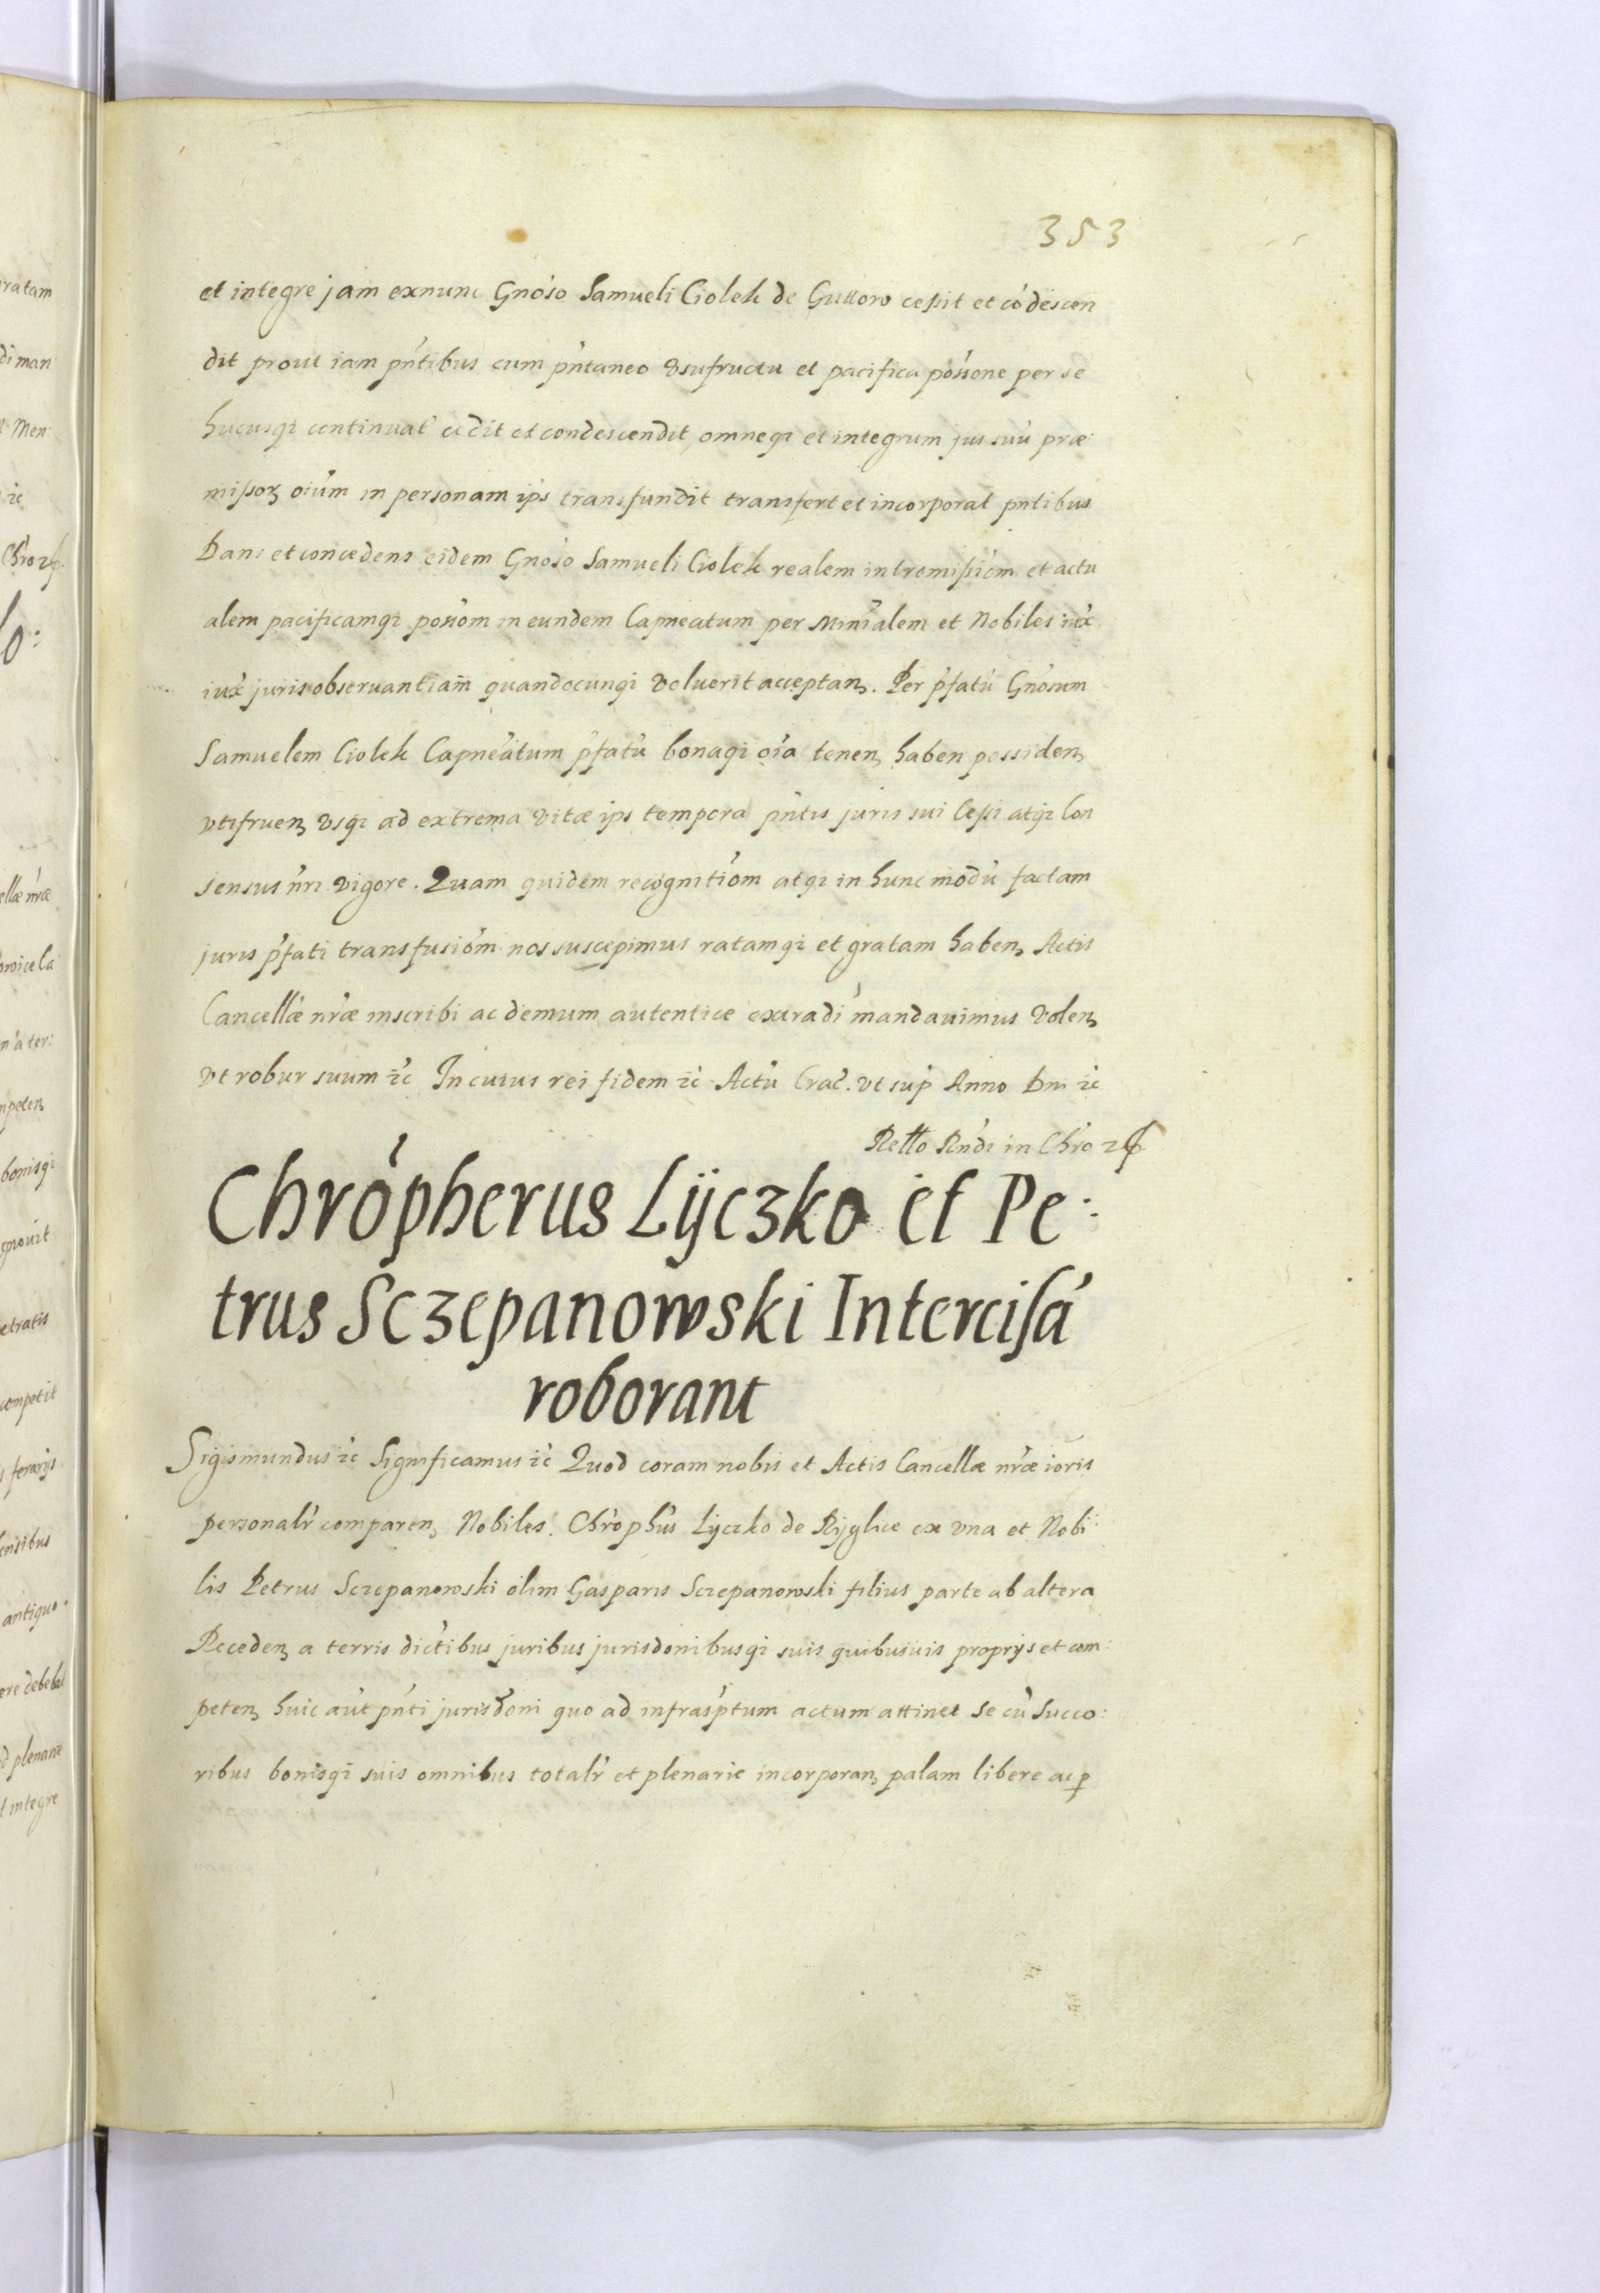 353
et integre jam exnunc Gnoso Samueli Ciolek de Guttoro cessit et códescen
dit prout iam pñtibus cum pñtaneo vsufructu et pacifica possone per se
hucusqȝ continuat cedit et condescendit, omneqȝ et integrum jus suũ præ
missoꝝ oiũm in personam ips transfundit transfert et incorporat pntibus
Dans et concedens eidem Gnoso Samueli Ciolek realem intromissiom et actu
alem pacificamqȝ possom in eundem Capneatum per Minialem et Nobiles
iux juris observantiam quandocunqȝ voluerit acceptanꝫ. Per pfatũ Gnosum
Samuelem Ciolek Capneatum pfatũ bonaqȝ oia tenenꝫ haben possidenꝫ
vtifruenꝫ vsqȝ ad extrema vitæ ips tempora pñtis juris sui Cessi atqȝ Con
sensus nri vigore. Quam quidem recognitiom atqȝ in hunc modũ factam
juris pfati transfusiom nos suscepimus ratamqȝ et gratam habenꝫ Actis
Cancellæ nræ inscribi ac demum autentice extradi mandauimus Volenꝫ
vt robur suum ꝛc In cuius rei fidem ꝛc Actũ Crac. vt sup Anno Dni ꝛc
Retto Rndi in Chro ꝛꝭ
Chrópherus Lijczko et Pe:
trus Sczepanowski Intercisá
roborant
Sigismundus ꝛc Significamus ꝛc Quod coram nobis et Actis Cancellæ nræ ioris
personalr comparenꝫ Nobiles. Chrophũs Lijczko de Rijglice ex vna et Nobi
lis Petrus Sczepanowski olim Gasparis Sczepanowski filius parte ab altera
Recedenꝫ a terris dictibus juribus jurisdonibusqȝ suis quibusuis proprijs et com:
petenꝫ huic aut pñti jurisdoni quo ad infrasptum actum attinet se cũ Succo:
ribus bonisqȝ suis omnibus totalr et plenarie incorporanꝫ palam libere ac ꝑ